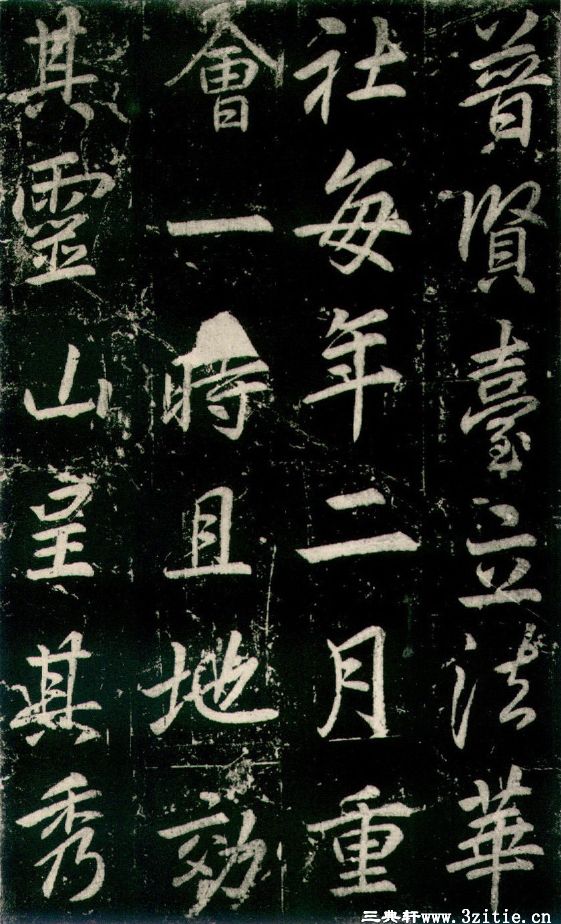 普賢臺立法華
社每年二月重
會一時且地効
其靈山呈其秀
三典轩www.3zitie.cn